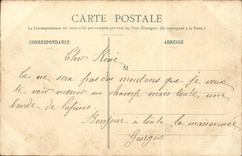 CARTE POSTALE
La Correspondance au recto n'est pas acceptée par tous les Pays Étrangers (Se renseigner à la Poste.)
CORRESPONDANCE
ADRESSE
Cher René
Ce ne sera pas des moutons que je veux
te voir mener au champ mais toute une
bande de lapins.
Bonjour à toute la maisonnée
Georges